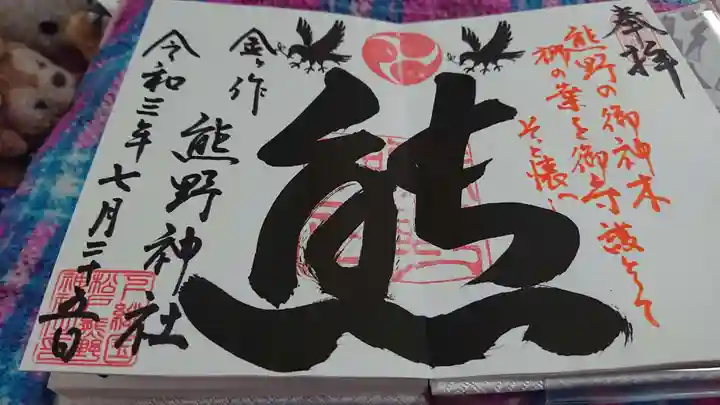 奉拝
熊野の御神木
梛の葉を御守護として
そっと懐へ
熊
金ヶ作
熊野神社
令和三年七月二十五日
下総国
松戸熊野